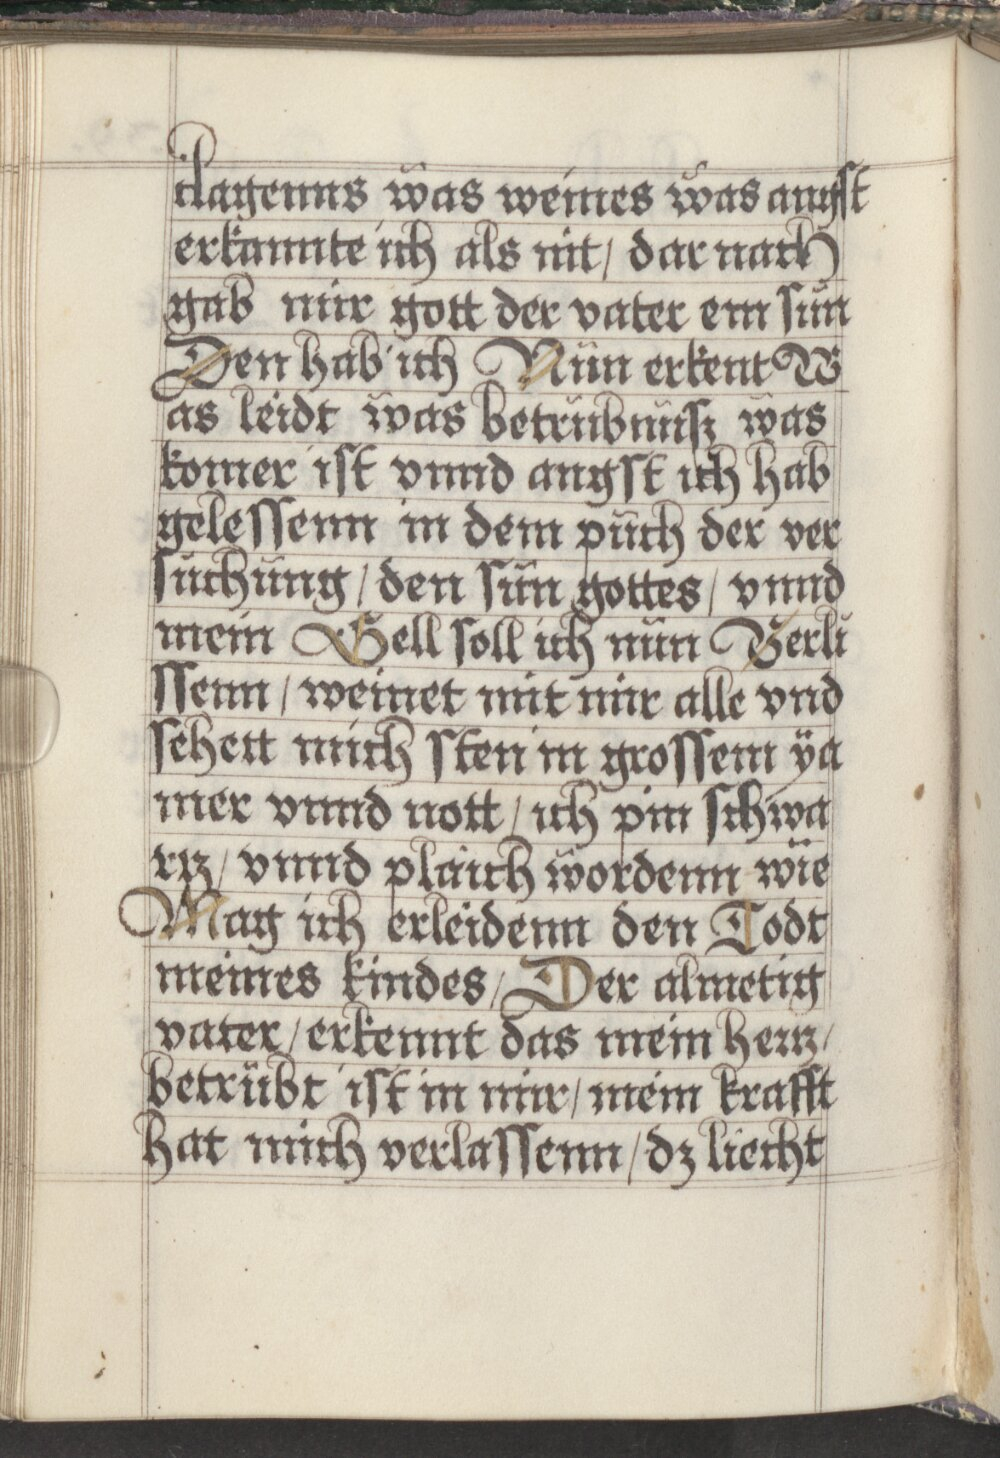 clagenns was weines was angst
erkannte ich als nit / dar nach
gab mir gott der vater ein sun
Den hab ich Nün erkent W
as leidt was betrübnüsz was
komer ist vnnd angst ich hab
gelessenn in dem püch der ver
süchüng / den sün gottes / vnnd
mein Sell soll ich nün Verli
ssenn / weinet mit mir alle vnd
sehett mich sten in grossem ya
mer vnnd nott / ich pin schwa
rtz / vnnd plaich wordenn wie
Mag ich erleidenn den Todt
meines kindes / Der almetig
vater / erkennt das mein hertz /
betrübt ist in mir / mein krafft
hat mich verlassenn / dz liecht